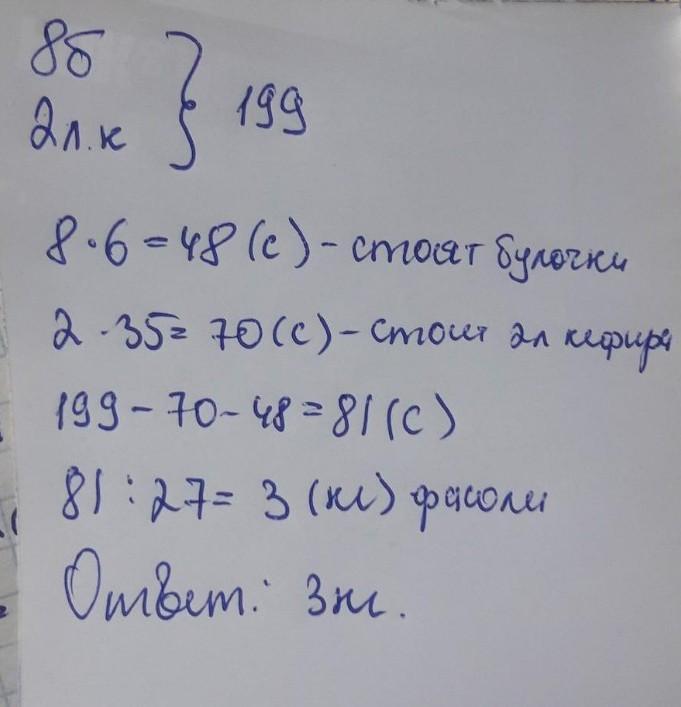 8б
2л.к } 199
8·6=48(с)-стоят булочки
2·35=70(с)-стоит 2л кефира
199-70-48=81(с)
81:27=3(кг) фасоли
Ответ: 3кг.